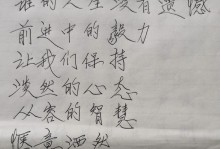 谁的人生没有遗憾
前进中的毅力
让我们保持
淡然的心态
从容的智慧
惬意洒然